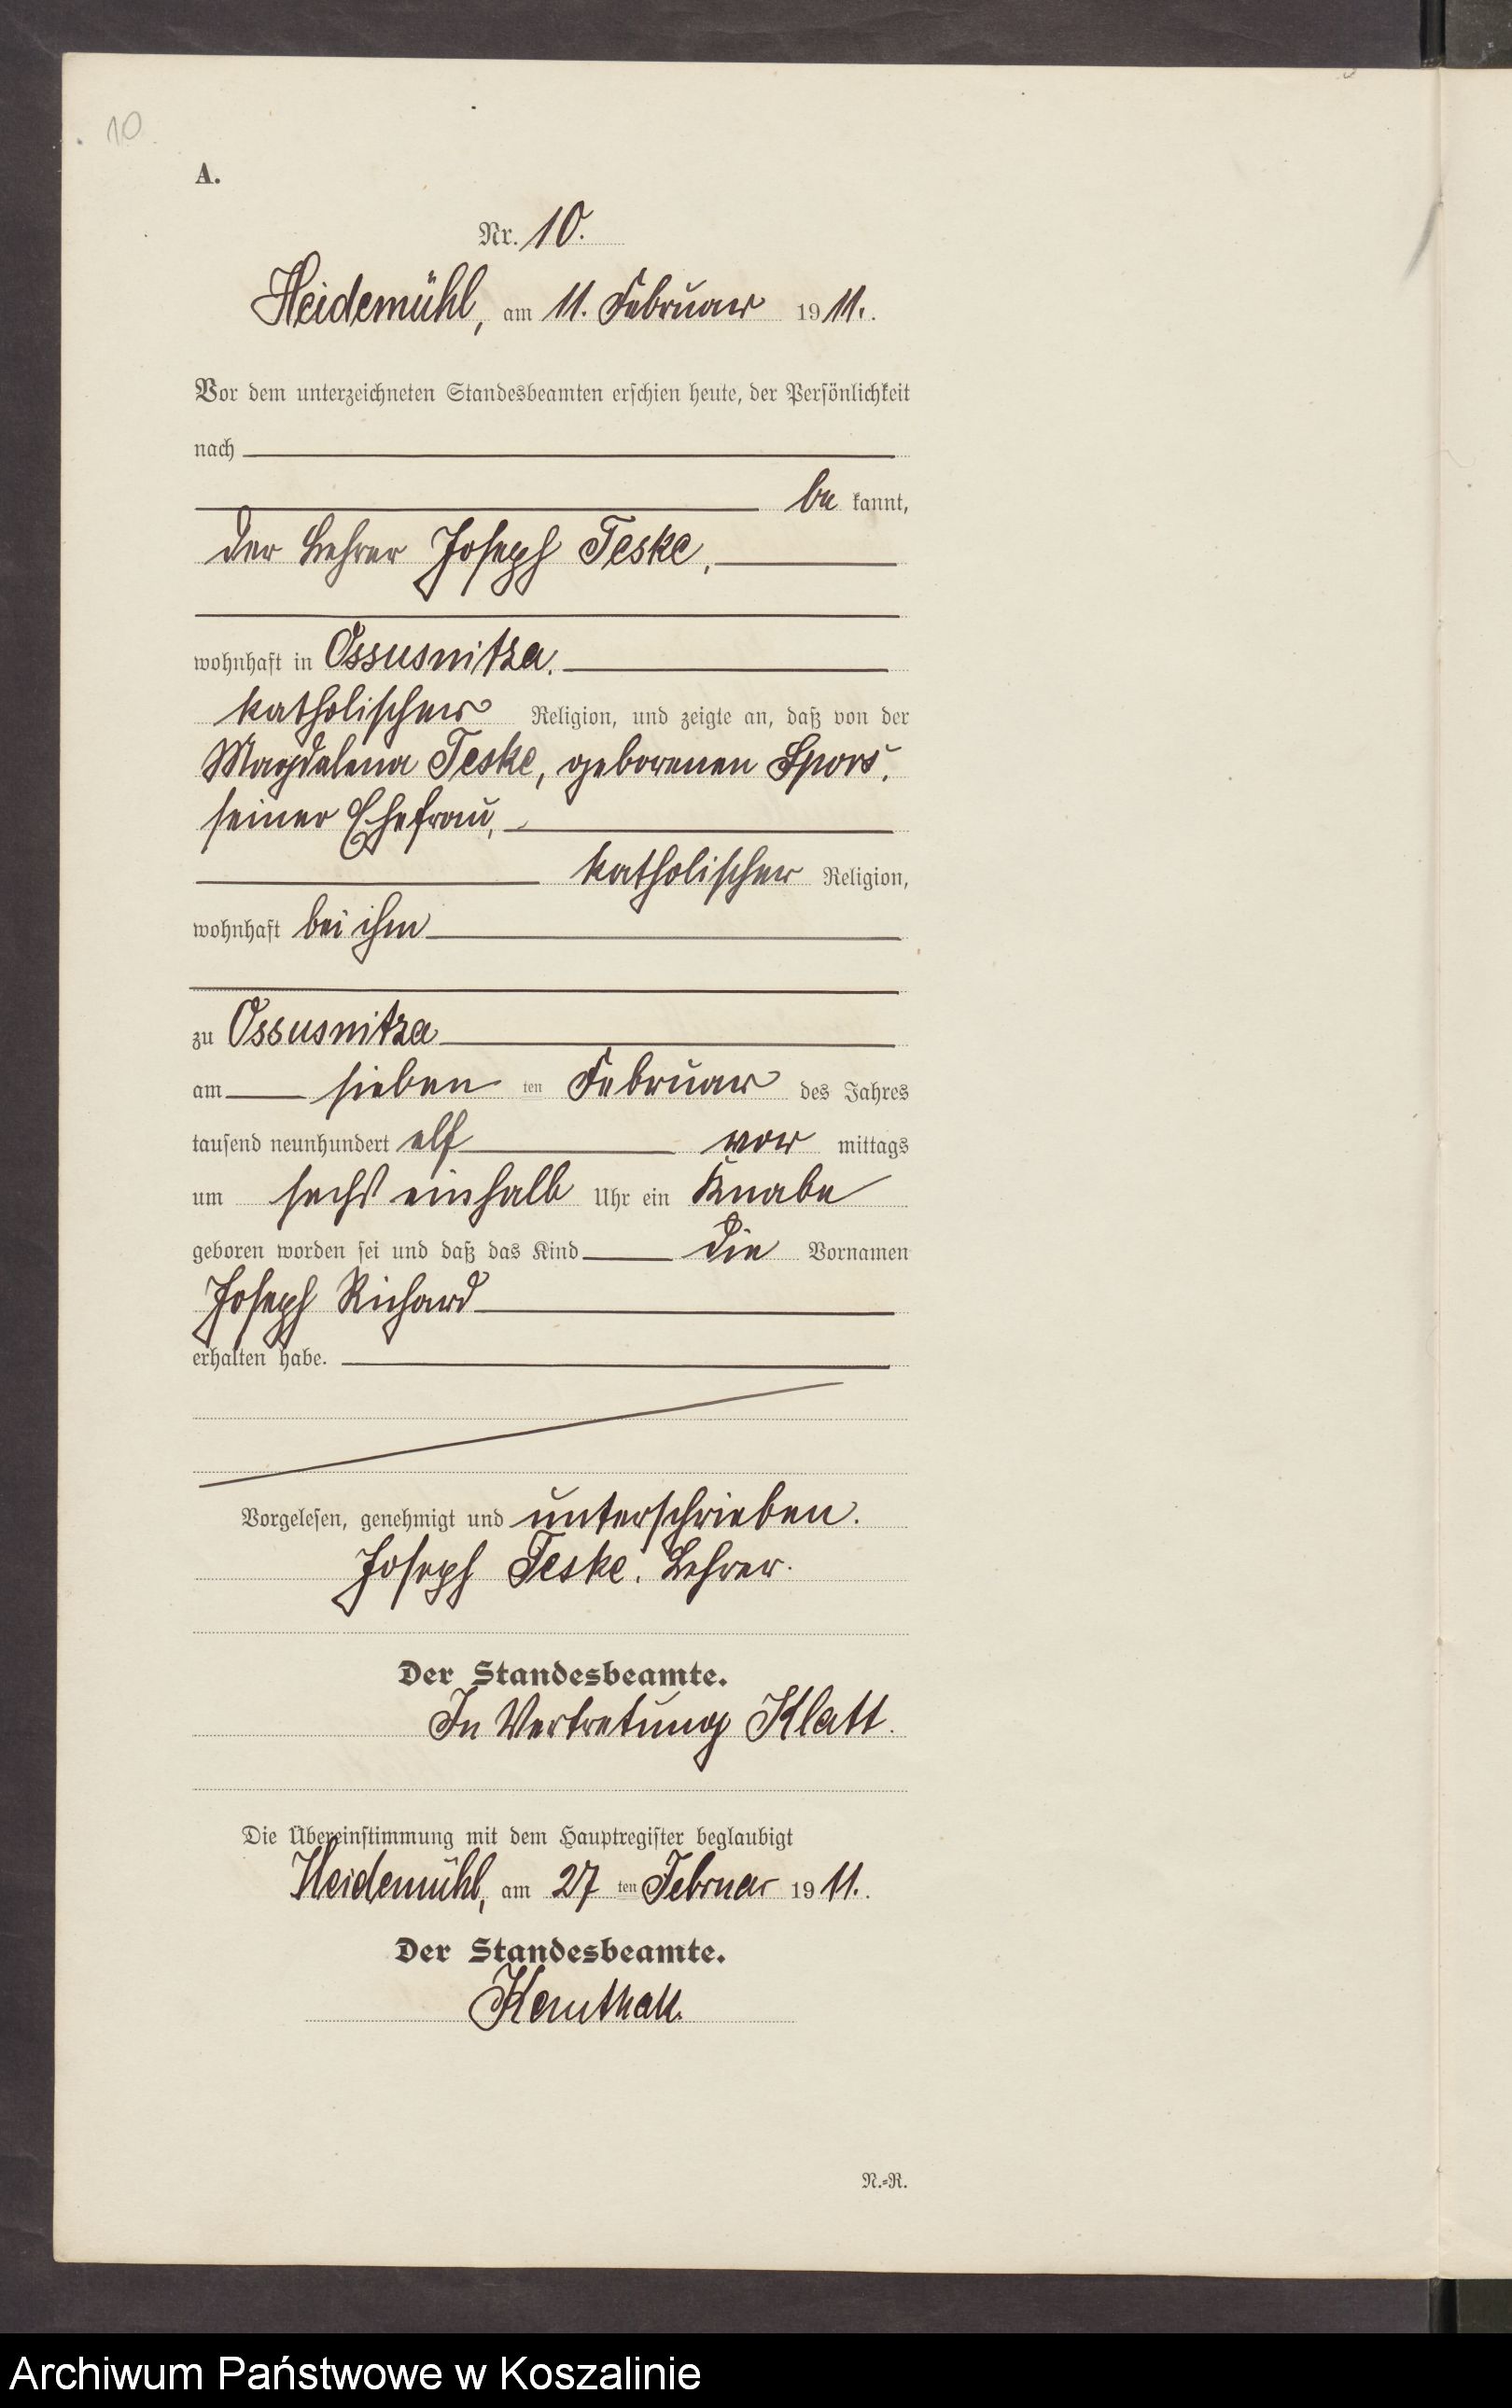 10
A.
Nr. 10.
Heidemühl, am 11. Februar 1911.
Vor dem unterzeichneten Standesbeamten erschien heute, der Persönlichkeit
nach
be kannt,
der Lehrer Joseph Teske,
wohnhaft in Ossusnitza,
katholischer Religion, und zeigte an, daß von der
Magdalena Teske, geborenen Spors,
seiner Ehefrau,
katholischer Religion,
wohnhaft bei ihm
zu Ossusnitza
am sieben ten Februar des Jahres
tausend neunhundert elf vor mittags
um sechs einhalb Uhr ein Knabe
geboren worden sei und daß das Kind die Vornamen
Joseph Richard
erhalten habe.
Vorgelesen, genehmigt und unterschrieben.
Joseph Teske. Lehrer.
Der Standesbeamte.
In Vertretung Klatt.
Die Übereinstimmung mit dem Hauptregister beglaubigt
Heidemühl, am 27 ten Februar 1911.
Der Standesbeamte.
N.=R.
Archiwum Państwowe w Koszalinie